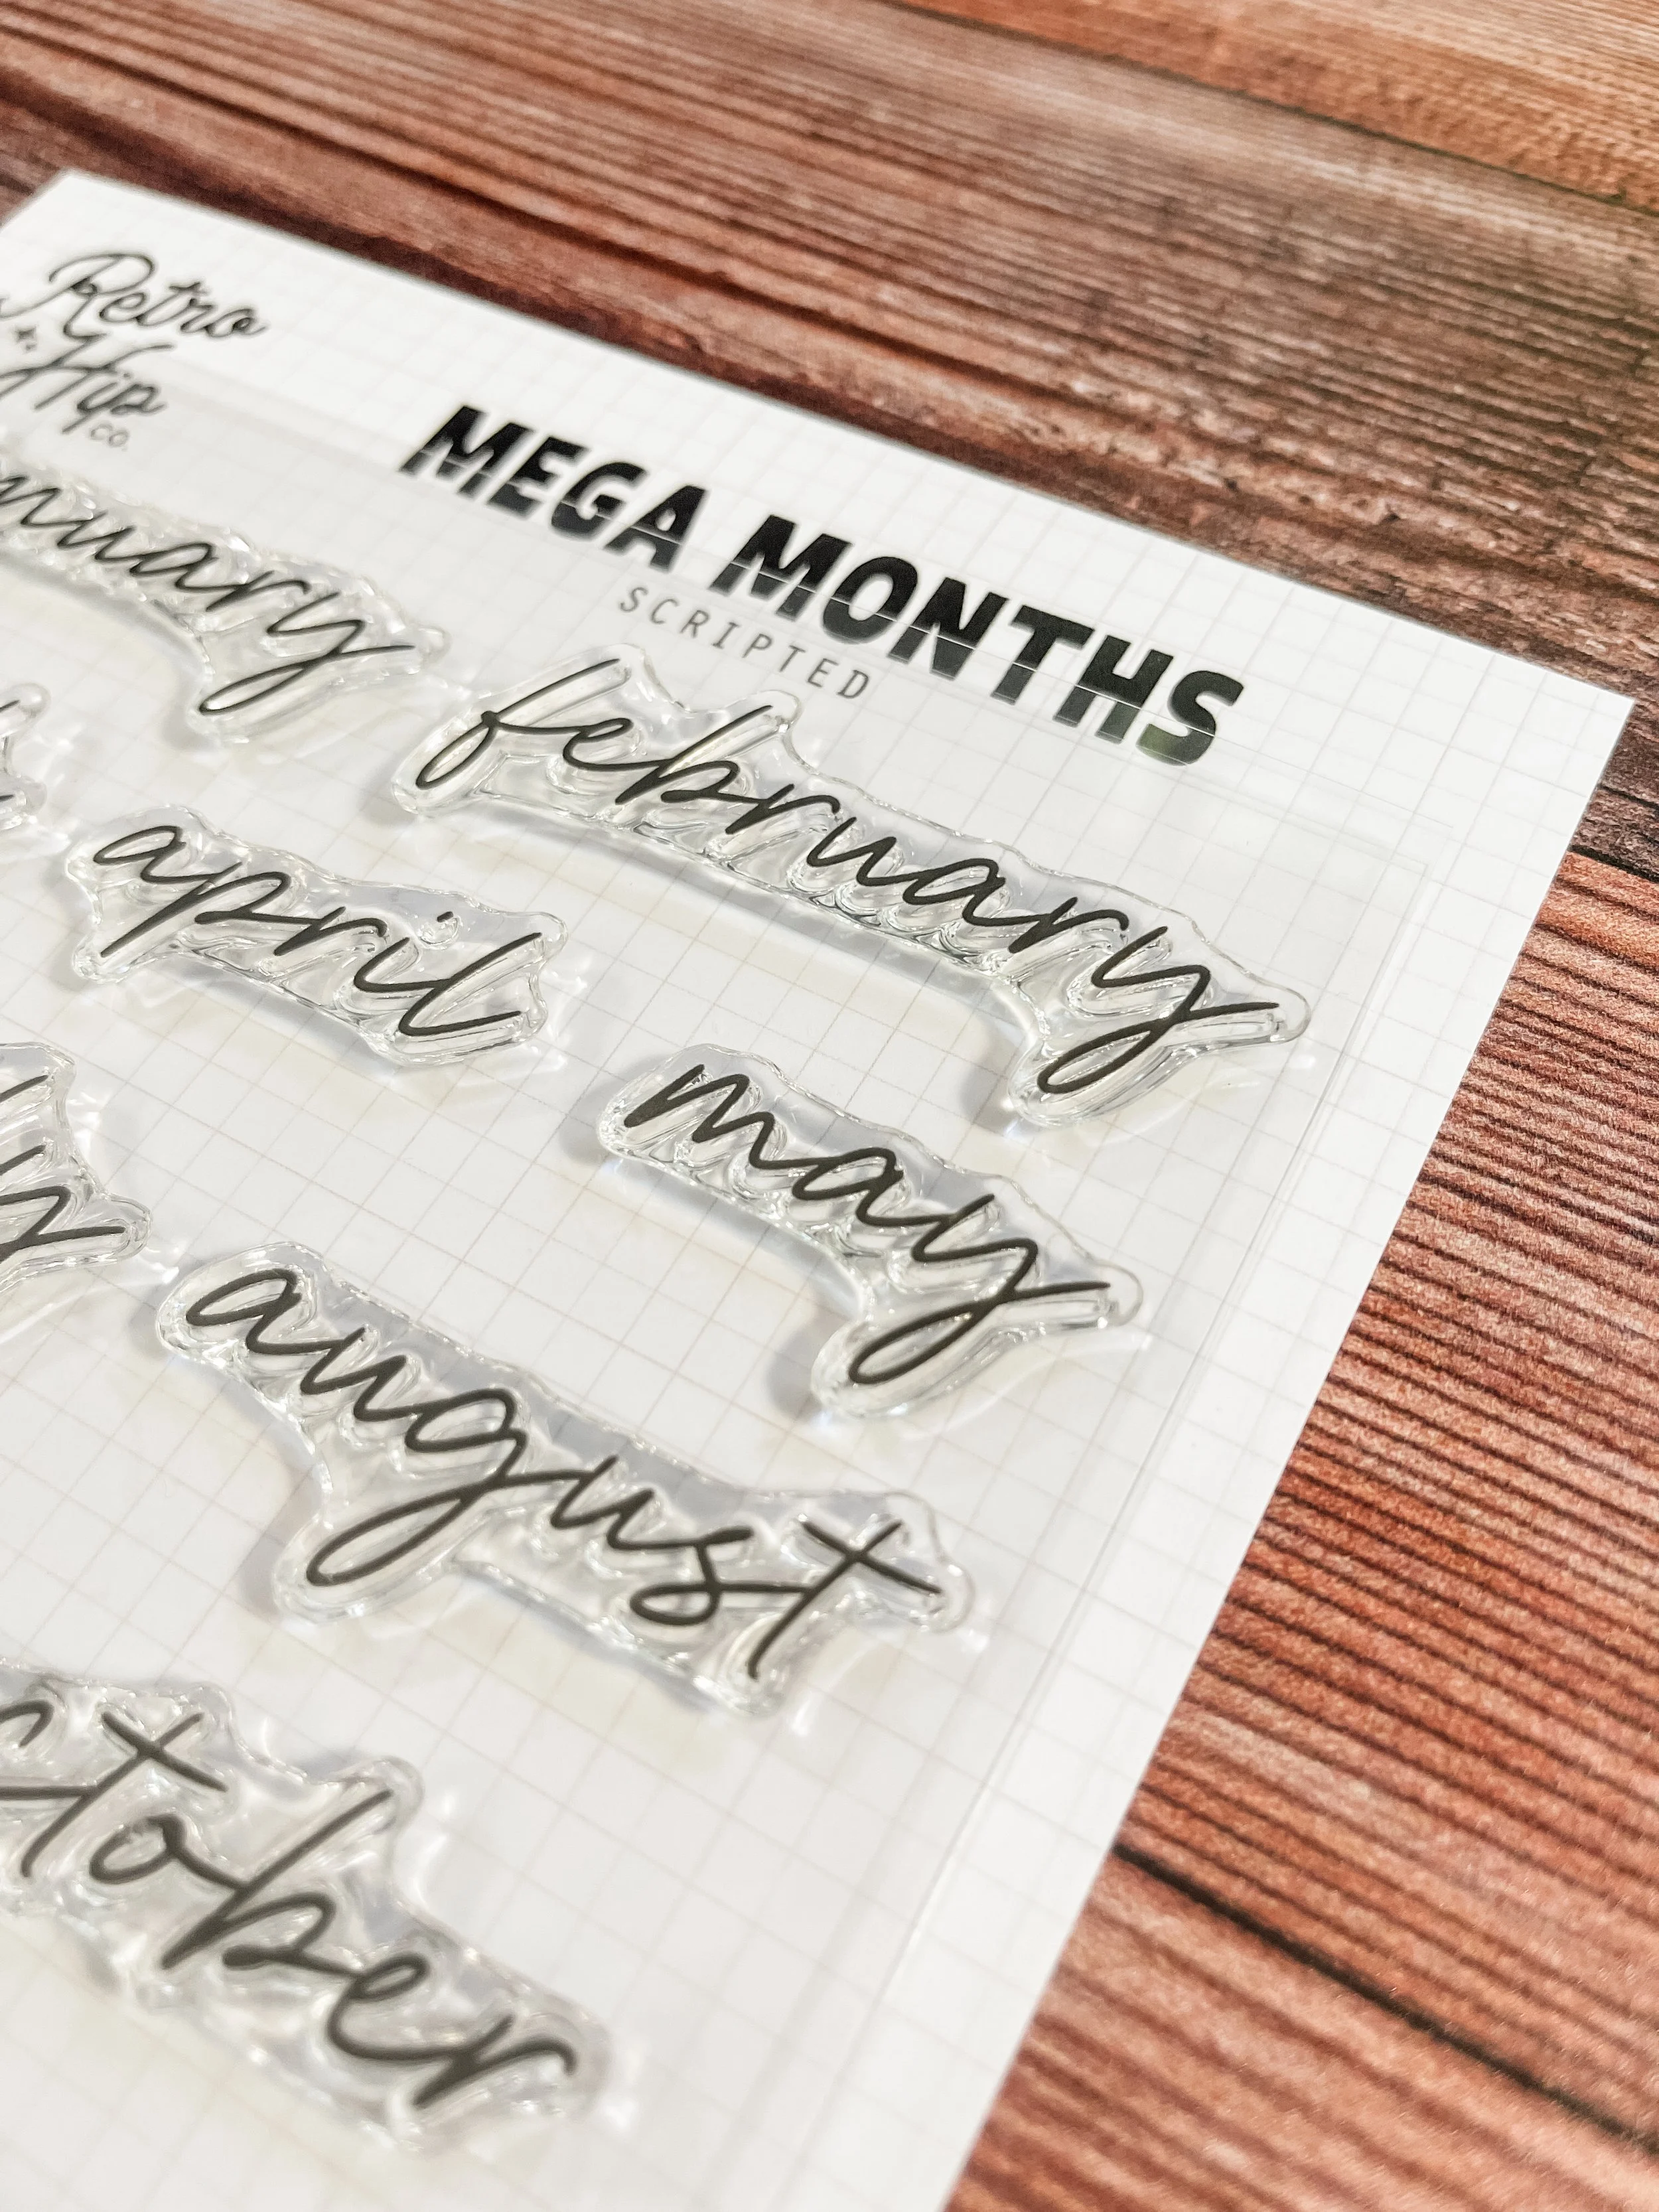 Retro
Hip
CO.
MEGA MONTHS
SCRIPTED
nuary
february
april
may
august
ctober